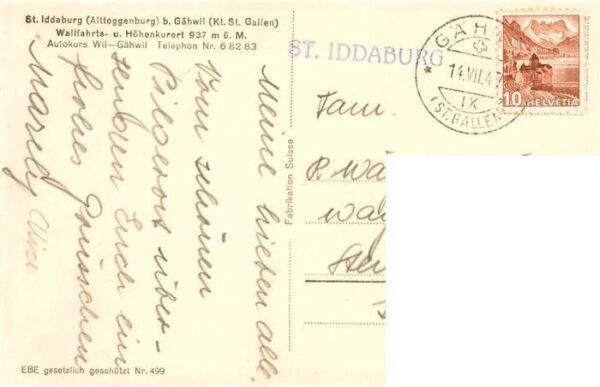 St. Iddaburg (Alttoggenburg) b. Gähwil (Kt. St. Gallen)
Wallfahrts- u. Höhenkurort 937 m ü. M.
Autokurs Wil—Gähwil Telephon Nr. 6 82 83
ST. IDDABURG
GÄHW
14.VII.47
IX
(ST.GALLEN
10 HELVETIA
Meine lieben alle,
Vom schönen
Pilgerort über-
senden Euch ein
frohes Grüsschen
Fabrikation Suisse
Fam.
EBE gesetzlich geschützt Nr. 499